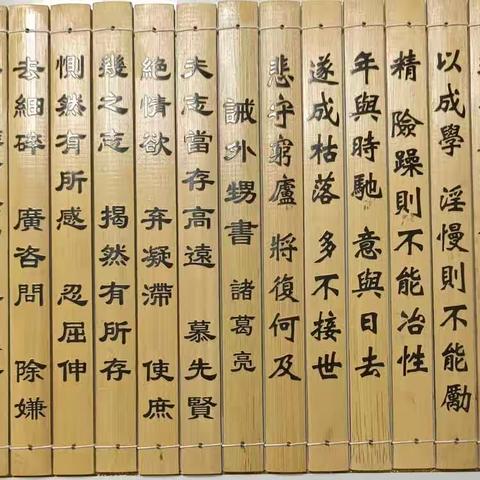 以成學 淫慢則不能勵
精 險躁則不能冶性
年與時馳 意與日去
遂成枯落 多不接世
悲守窮廬 將復何及
誡外甥書 諸葛亮
夫志當存高遠 慕先賢
絕情欲 弃凝滯 使庶
幾之志 揭然有所存
惻然有所感 忍屈伸
去細碎 廣咨問 除嫌